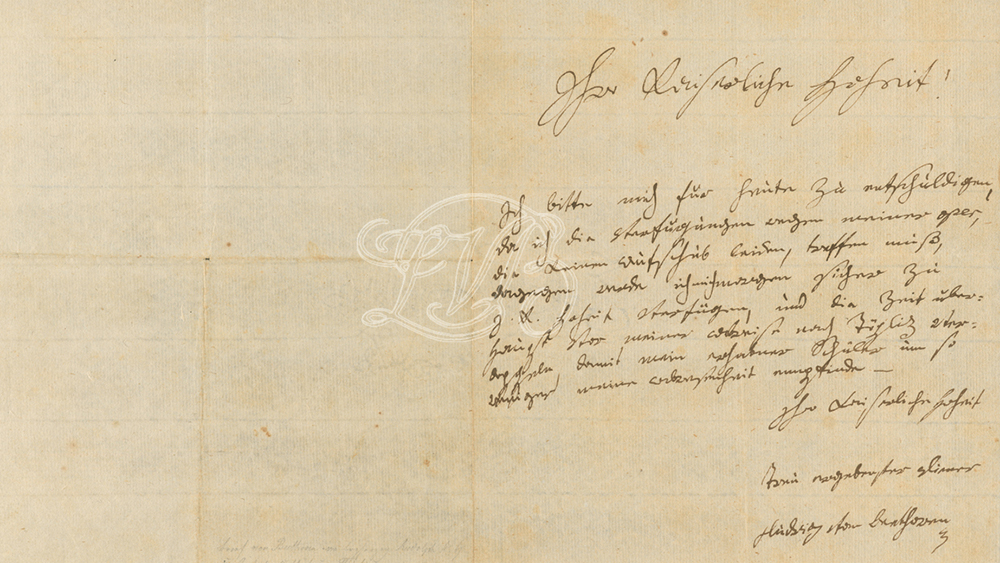 Ihro Kaiserliche Hoheit!
Ich bitte mich für heute zu entschuldigen,
da ich die Verfügungen wegen meiner oper,
die keinen Aufschub leiden, treffen muß,
dagegen werde ich mich morgen sicher zu
I. K. Hoheit verfügen, und die Zeit über-
haupt vor meiner Abreise nach Töpliz ver-
doppeln, damit mein erhabner Schüler um so
weniger meine Abwesenheit empfinde —
Ihro Kaiserliche Hoheit
treu ergebenster Diener
Ludwig van Beethoven
LVB